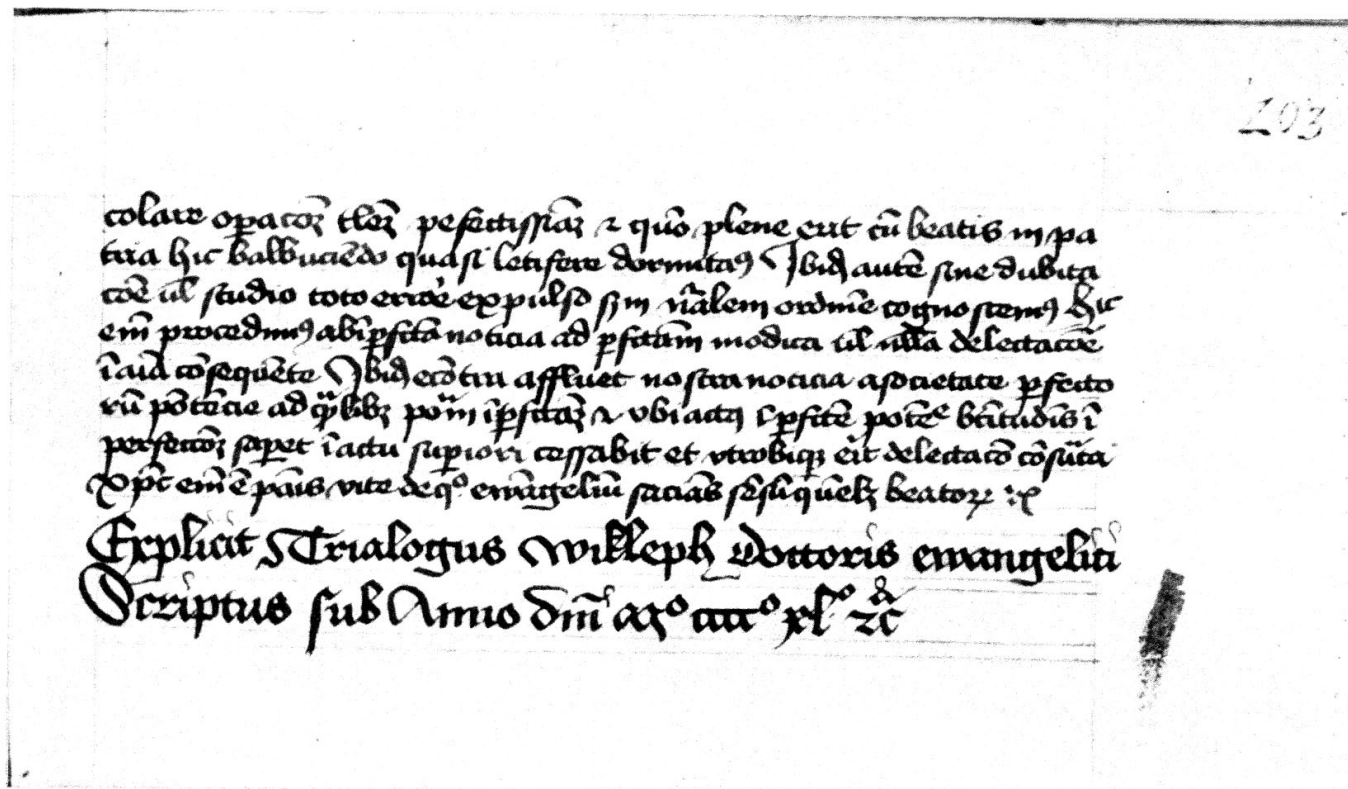 203
colare oꝑacōꝫ tlēꝫ pefectissiāꝫ ⁊ quō plene erit cū beatis in pa
tria hic balbuciēdo quasi letifere dormitaꝯ Ibidē autē sine dubita
cōe ul studio toto errōe expulso ẜm nr̄alem ordinē cognoscemꝯ hic
em̄ procedimꝯ ab īꝑfcta noticia ad ꝑfctam modica ul nulla delectacōe
ī aīa cōsequēte Ibidē ecōtra affluet nostra noticia a societate ꝑfecto
rū potēcie ad īꝑfctaꝫ ⁊ vbi actꝯ btītudīs ī
perfeccōꝫ saꝑet ī actu suꝑiori cessabit et vtrobiqꝫ erit delectacō
xp̄c em̄ ē pāis vite de qͦ ewāgeliū sacians quēlꝫ beatoꝝ ⁊c
Explicit Trialogus Wikleph doctoris ewangelici
Scriptus sub Anno dm̄i Mͦ ccccͦ xlͦ ⁊c̄